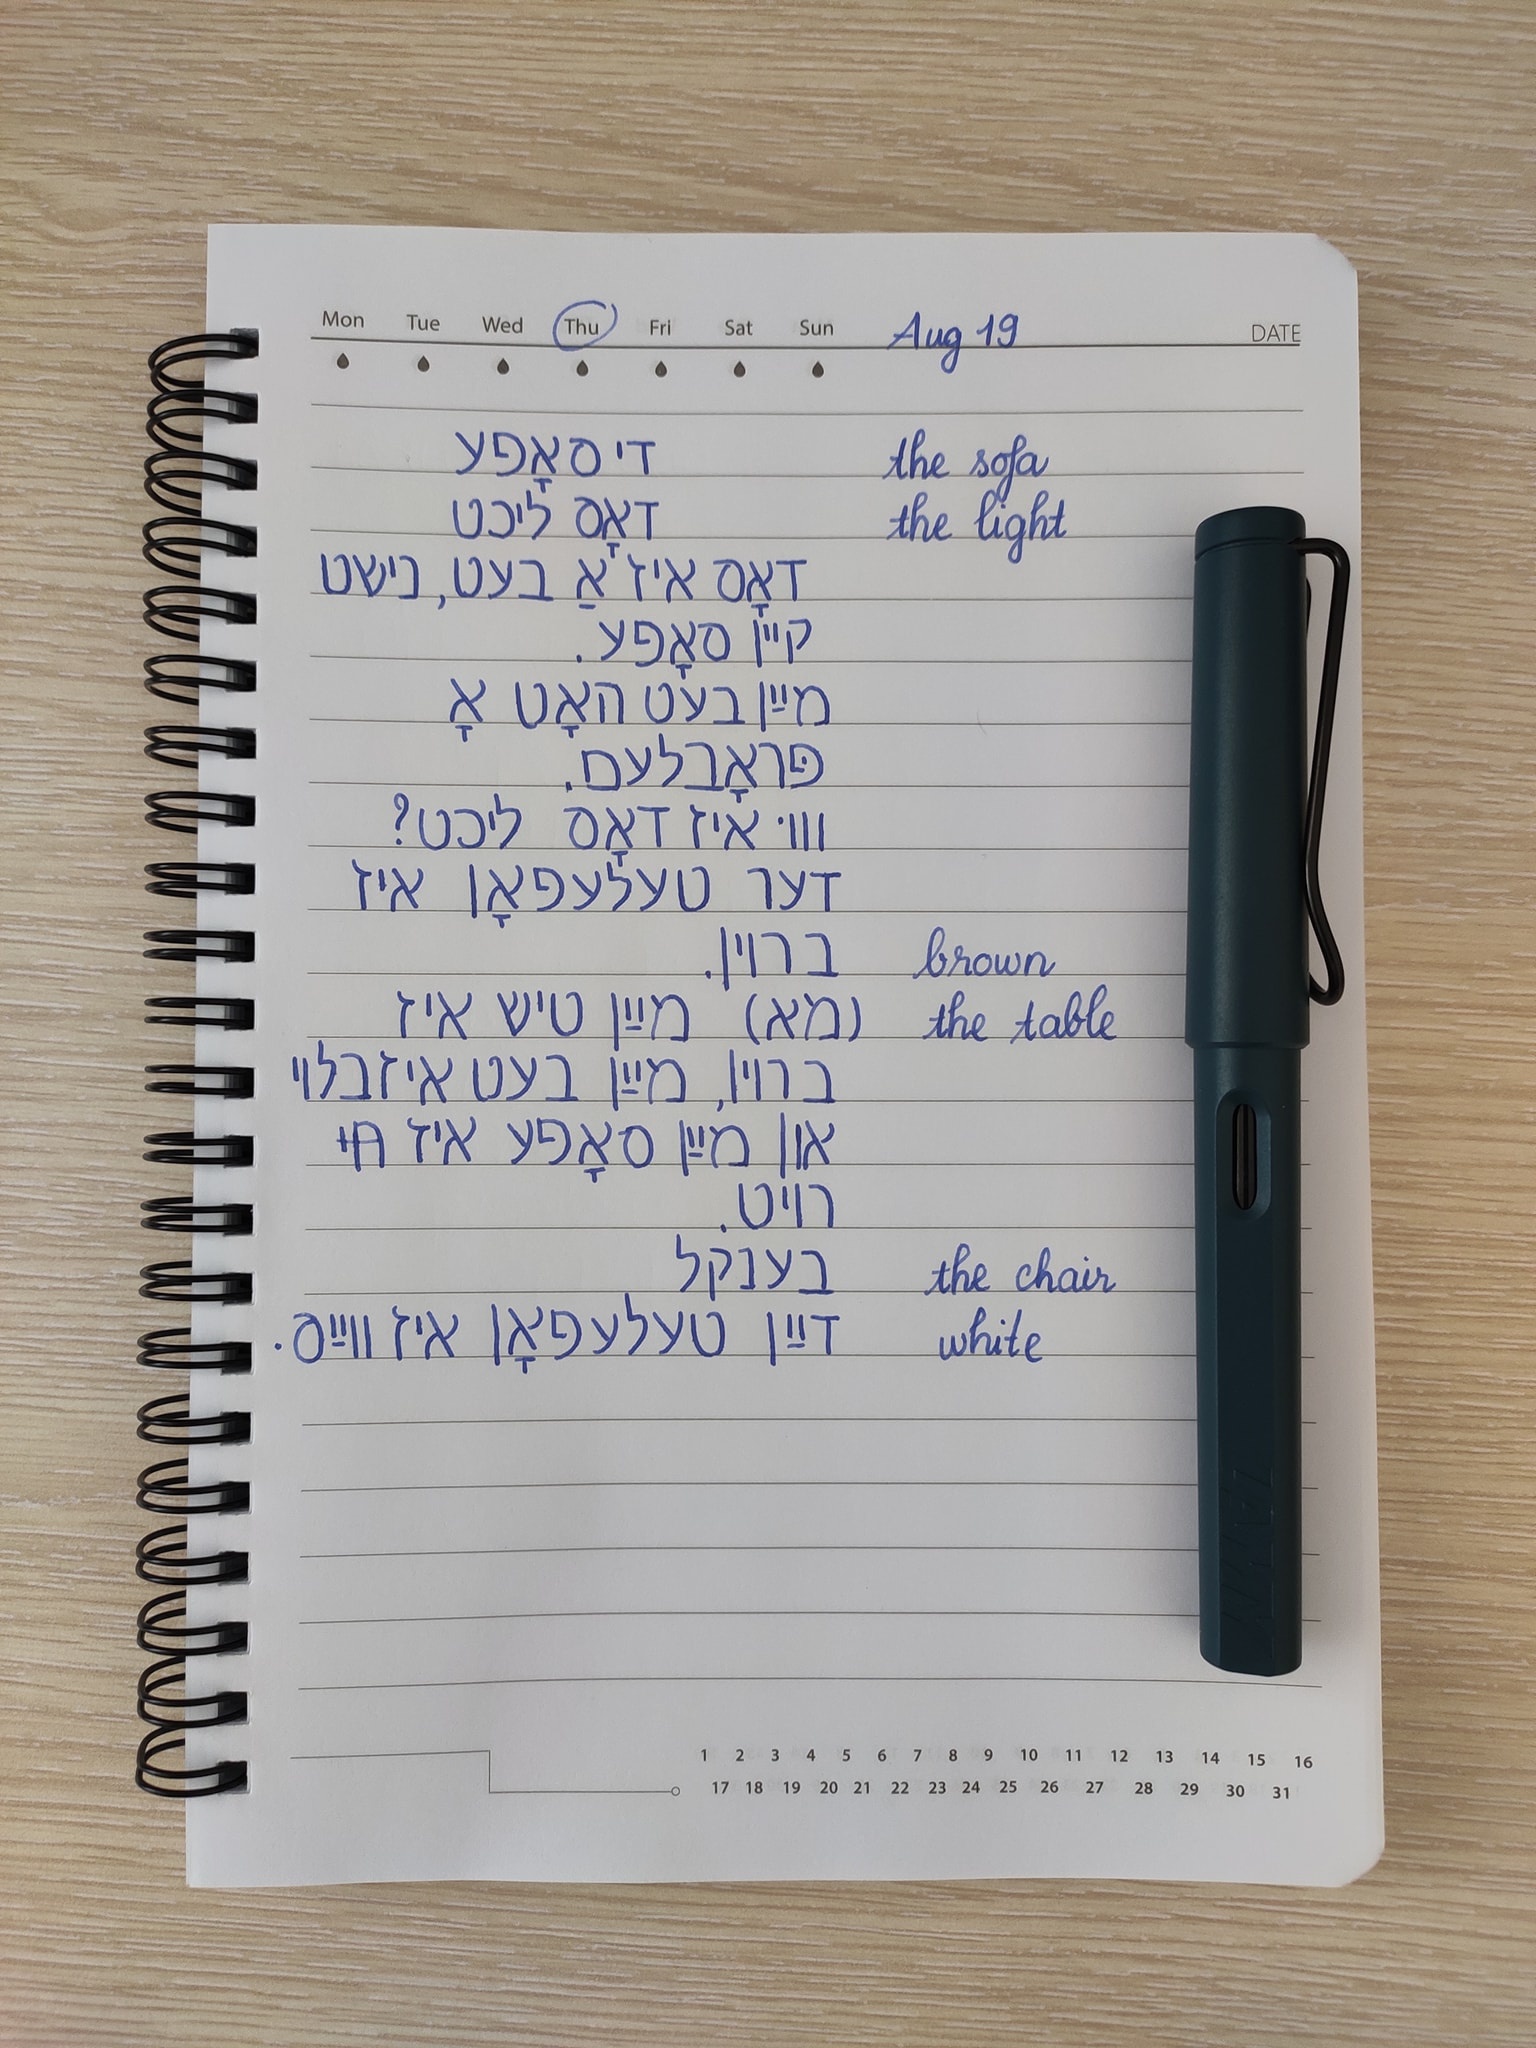 Mon Tue Wed Thu Fri Sat Sun Aug 19 DATE
די סאָפע the sofa
דאָס ליכט the light
דאָס איז אַ בעט, נישט
קיין סאָפע.
מײַן בעט האָט אָ
פּראָבלעם.
ווי איז דאָס ליכט?
דער טעלעפאָן איז
ברוין. brown
(מא) מײַן טיש איז the table
ברוין, מײַן בעט איז בלוי
און מײַן סאָפע איז
רויט.
בענקל the chair
דײַן טעלעפאָן איז ווײַס. white
1 2 3 4 5 6 7 8 9 10 11 12 13 14 15 16
17 18 19 20 21 22 23 24 25 26 27 28 29 30 31
LAMY